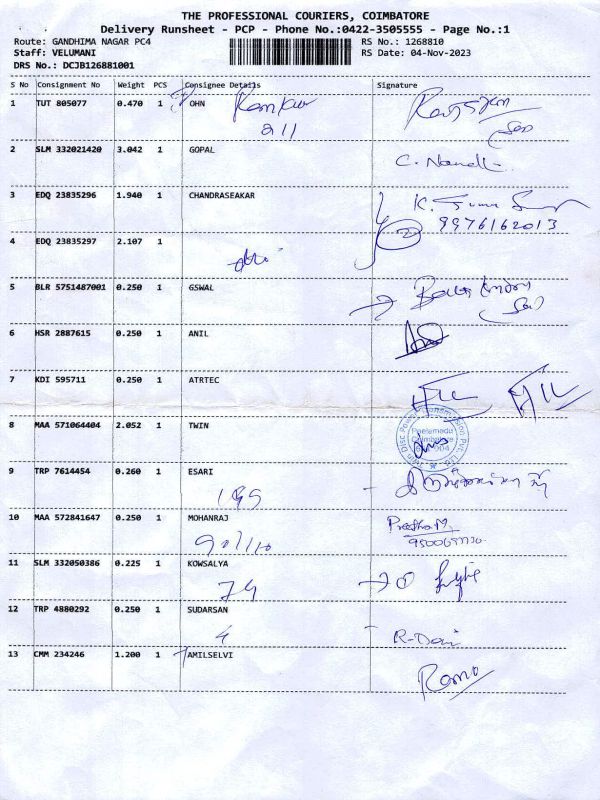 THE PROFESSIONAL COURIERS, COIMBATORE
Delivery Runsheet - PCP - Phone No.:0422-3505555 - Page No.:1
Route: GANDHIMA NAGAR PC4 RS No.: 1268810
Staff: VELUMANI RS Date: 04-Nov-2023
DRS No.: DCJB126881001
S No Consignment No Weight PCS Consignee Details Signature
1 TUT 805077 0.470 1 OHN
211
2 SLM 332021420 3.042 1 GOPAL
3 EDQ 23835296 1.940 1 CHANDRASEAKAR
9976162013
4 EDQ 23835297 2.107 1
5 BLR 5751487001 0.250 1 GSWAL
6 HSR 2887615 0.250 1 ANIL
7 KDI 595711 0.250 1 ATRTEC
8 MAA 571064404 2.052 1 TWIN
9 TRP 7614454 0.260 1 ESARI
10 MAA 572841647 0.250 1 MOHANRAJ
11 SLM 332050386 0.225 1 KOWSALYA
74
12 TRP 4880292 0.250 1 SUDARSAN
4
13 CMM 234246 1.200 1 AMILSELVI